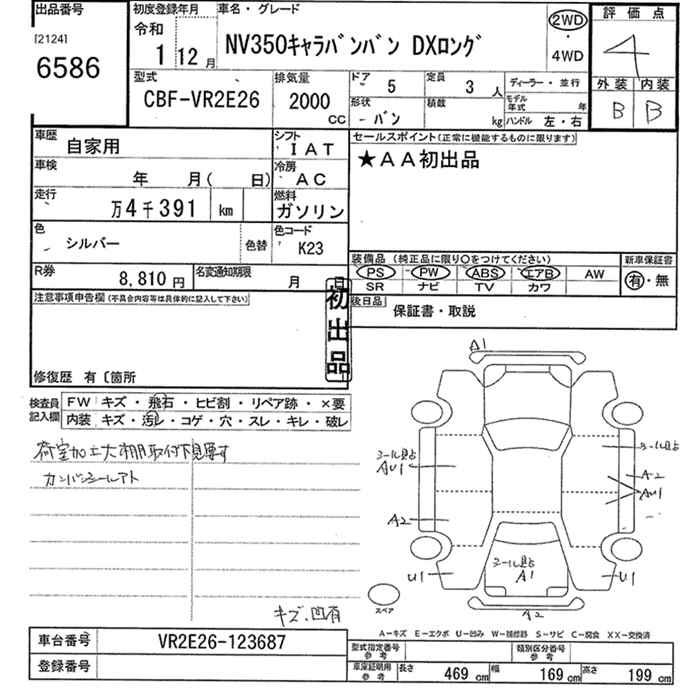 出品番号
[2124]
6586
初度登録年月
令和
1 12月
車名・グレード
NV350キャラバンバン DXロング
2WD
・
4WD
評価点
4
外装 内装
B B
型式
CBF-VR2E26
排気量
2000
CC
ドア 5
定員 3 人
ディーラー・並行
形状 バン
積載 kg
モデル年式 年
ハンドル 左・右
車歴 自家用
シフト IAT
車検 年 月( 日)
冷房 AC
走行 万4千391 km
燃料 ガソリン
色 シルバー 色替
色コード K23
R券 8,810円
名変通知期限 月 日
セールスポイント(正常に機能するものに限ります)
★AA初出品
装備品(純正品に限り○をつけてください)
PS PW ABS エアB AW
SR ナビ TV カワ
新車保証書
有・無
後日品
保証書・取説
注意事項申告欄(不具合内容等は具体的に記入して下さい)
初出品
修復歴 有〔箇所
検査員記入欄
FW キズ・飛石・ヒビ割・リペア跡・×要
内装 キズ・汚レ・コゲ・穴・スレ・キレ・破レ
荷室加工大 棚取付下見要す
キズ、凹有
A1
シール跡
AU1
A2
U1
シール跡
A2
AU1
シール跡
A1
U1
A2
スペア
A-キズ E-エクボ U-凹み W-補修跡 S-サビ C-腐食 XX-交換済
車台番号 VR2E26-123687
登録番号
型式指定番号 参考
類別区分番号 参考
車庫証明用 参考
長さ 469 cm
幅 169 cm
高さ 199 cm